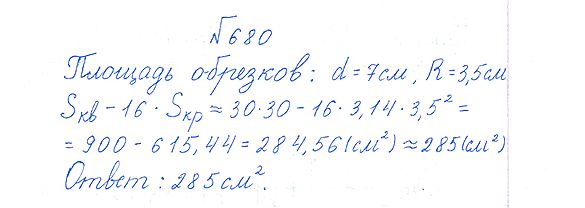 №680
Площадь обрезков: d=7см, R=3,5см
Sкв - 16 · Sкр ≈ 30·30 - 16·3,14·3,5² =
= 900 - 615,44 = 284,56 (см²) ≈ 285 (см²)
Ответ: 285 см².